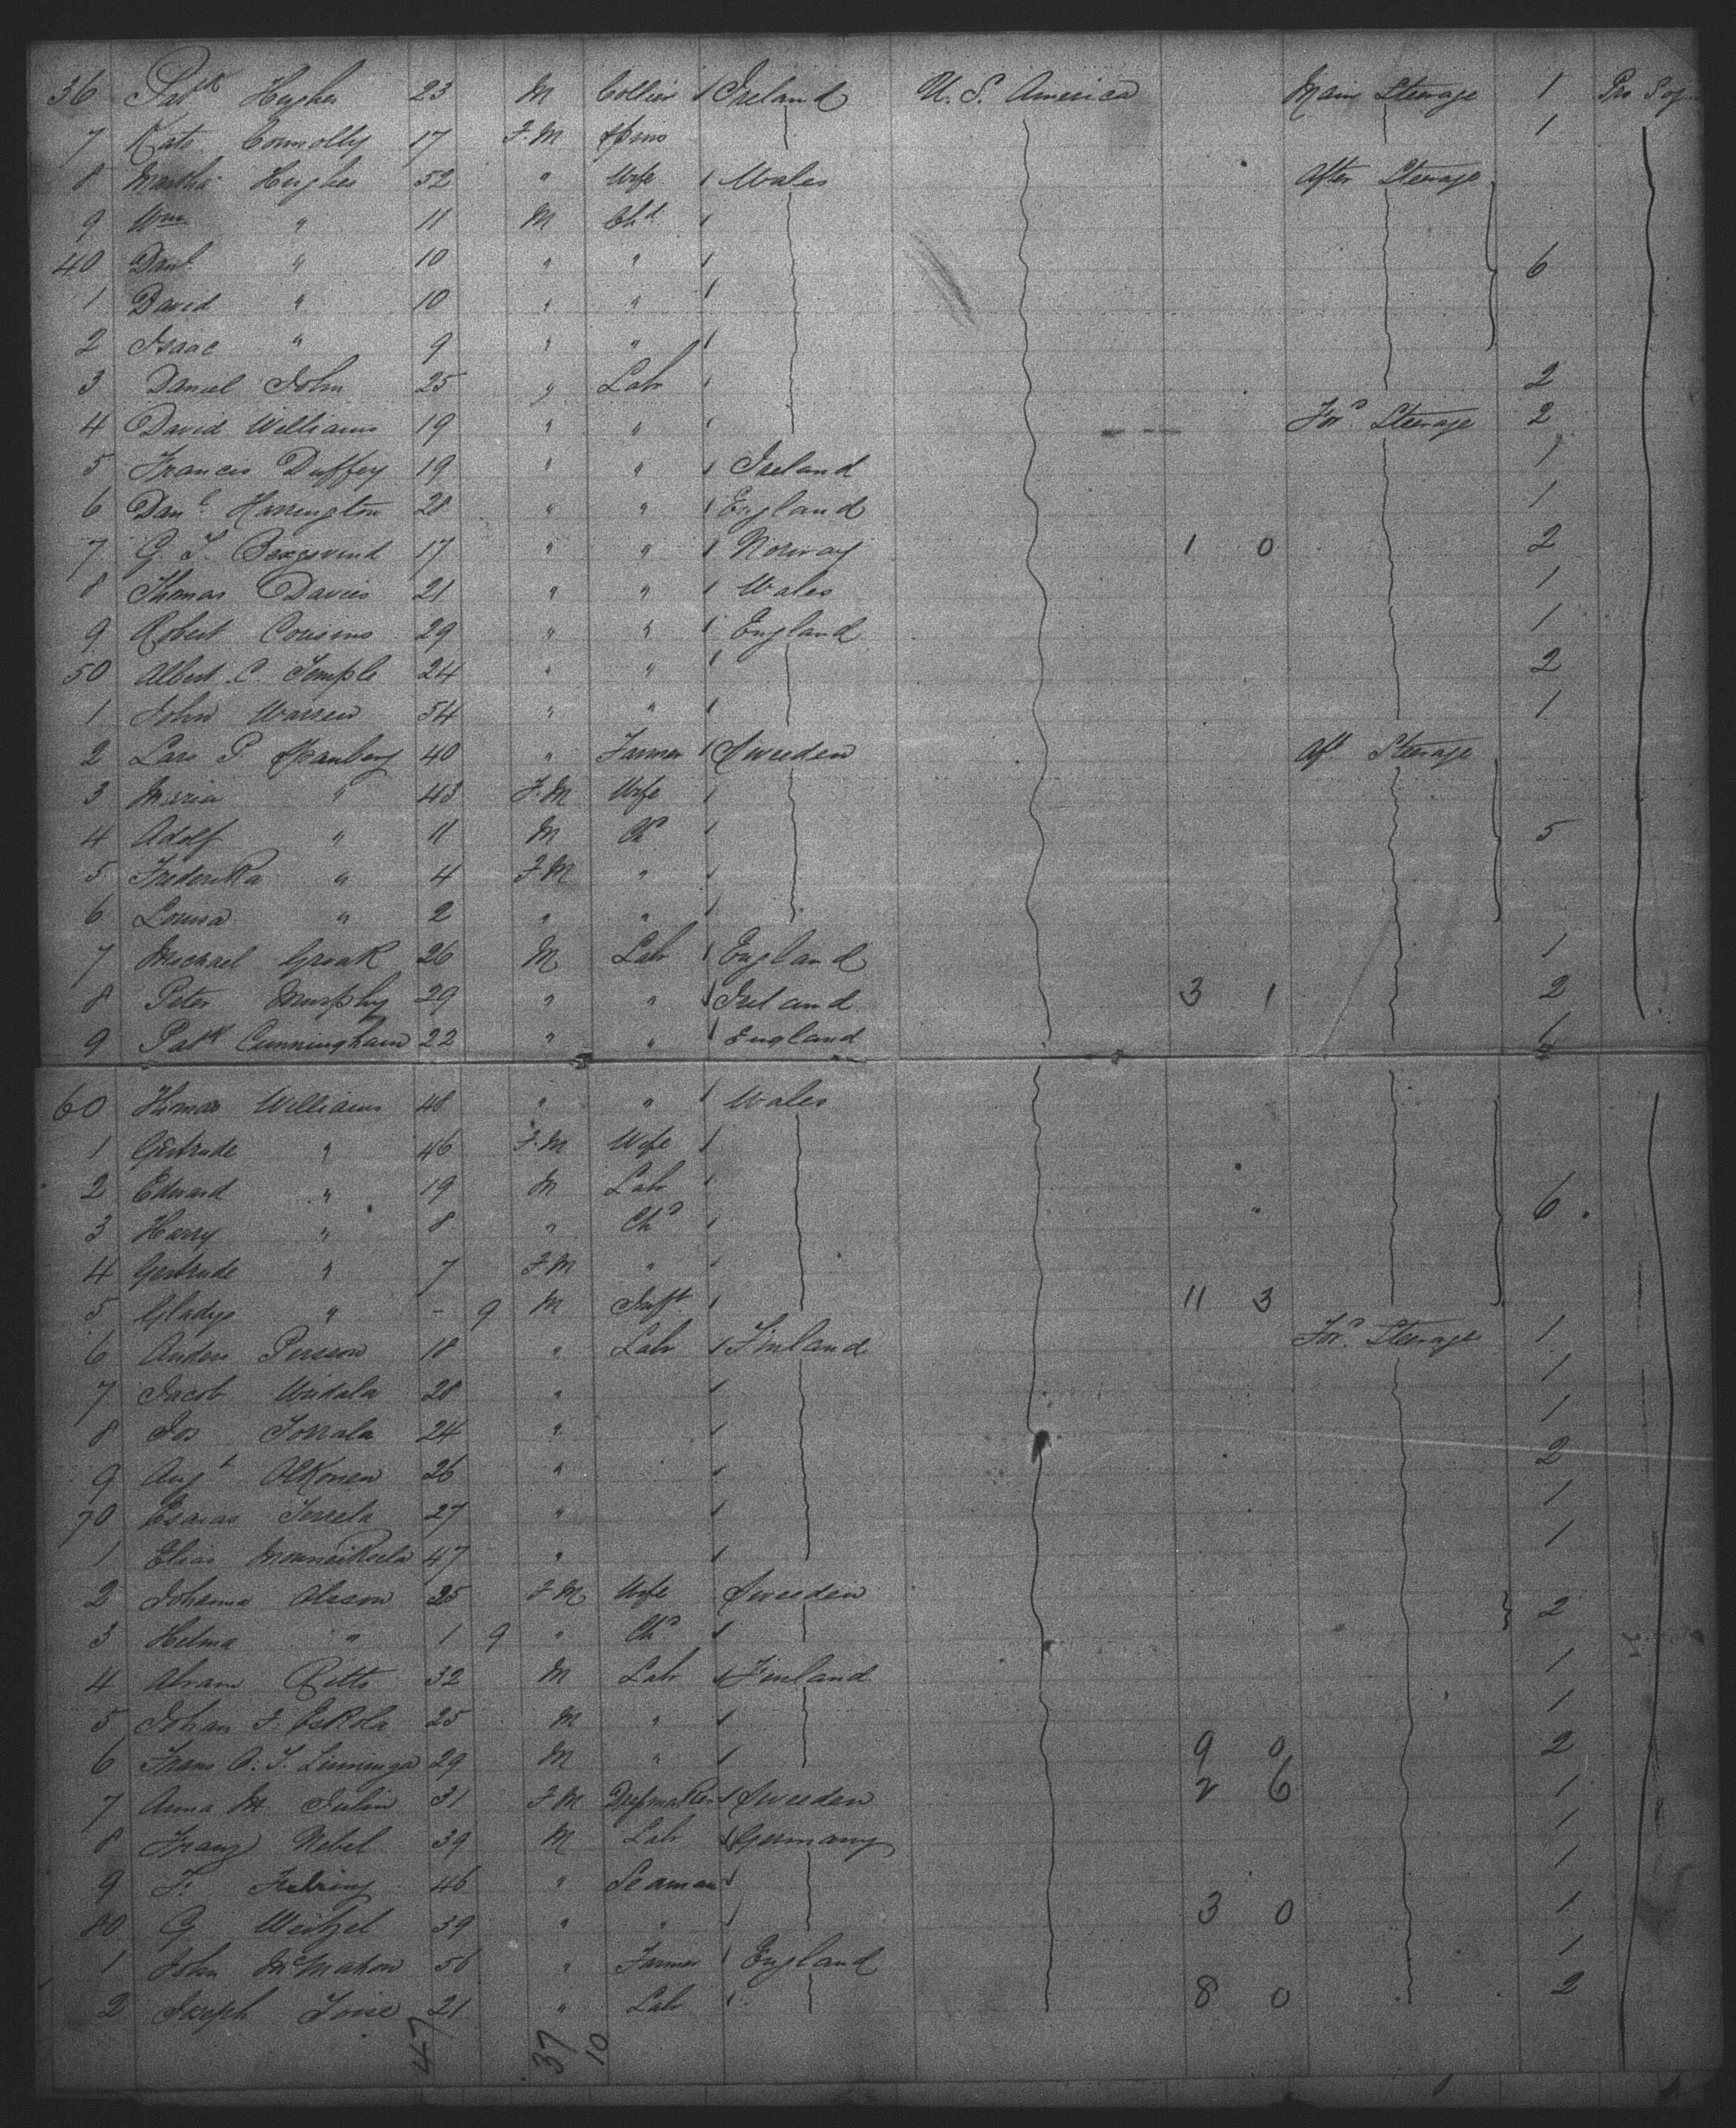 36 Patk Hughes 23 M Collier 1 Ireland U. S. America Main Steerage 1 Pro Soj
7 Kate Connolly 17 F.M Spins 1
8 Martha Hughes 52 " Wife 1 Wales After Steerage
9 Wm " 11 M Chd 1
40 Danl " 10 " " 1 6
1 David " 10 " " 1
2 Isaac " 9 " " 1
3 Daniel John 25 " Labr 1 2
4 David Williams 19 " " 1 Ford Steerage 2
5 Francis Duffey 19 " " 1 Ireland 1
6 Danl Harrington 28 " " 1 England 1
7 G. T. 17 " " 1 Norway 1 0 2
8 Thomas Davies 21 " " 1 Wales 1
9 Robert Cousins 29 " " 1 England 1
50 Albert C. Temple 24 " " 1 2
1 John Warren 54 " " 1 1
2 Lars P. Spanberg 40 " Farmer 1 Sweeden Aft Steerage
3 Maria " 43 F.M Wife 1
4 Adolf " 11 M Chd 1 5
5 Frederika " 4 F.M " 1
6 Louisa " 2 " " 1
7 Michael 26 M Labr 1 England 1
8 Peter Murphy 29 " " 1 Ireland 3 1 2
9 Patk Cunningham 22 " " 1 England 1
60 Thomas Williams 48 " " 1 Wales
1 Gertrude " 46 F.M Wife 1
2 Edward " 19 M Labr 1 6
3 Harry " 8 " Chd 1
4 Gertrude " 7 F.M " 1
5 Gladys " - 9 M Inft 1 11 3
6 Anders Persson 18 " Labr 1 Finland Ford Steerage 1
7 Jacob 28 " 1 1
8 Jos 24 " 1 1
9 Augt Olkonen 26 " 1 2
70 Esaias 27 " 1 1
1 Elias 47 " 1 1
2 Johanna Olsson 25 F.M Wife Sweeden 2
3 Helma " 1 9 " Chd 1
4 Abram 32 M Labr 1 Finland 1
5 Johan F. Eskola 25 M " 1 1
6 Frans O. S. 29 M " 1 9 0 2
7 Anna M. Julin 31 F.M Dressmaker 1 Sweeden 2 6 1
8 Franz Nebel 39 M Labr 1 Germany 1
9 F. 46 " Seaman 1 1
80 G Weitzel 39 " " 1 3 0 1
1 John McMahon 56 " Farmer 1 England 1
2 Joseph 21 " Labr 1 8 0 2
47 37 10